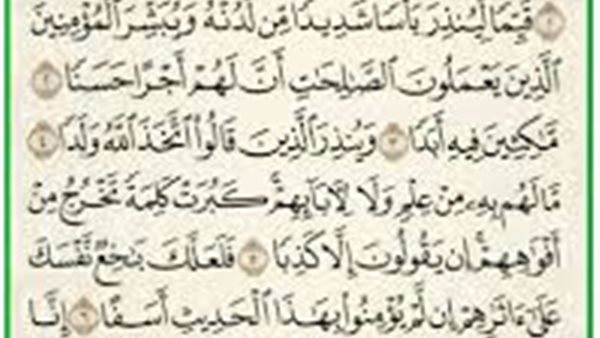 ۝١ قَيِّمًا لِّيُنذِرَ بَأْسًا شَدِيدًا مِّن لَّدُنْهُ وَيُبَشِّرَ ٱلْمُؤْمِنِينَ
ٱلَّذِينَ يَعْمَلُونَ ٱلصَّـٰلِحَـٰتِ أَنَّ لَهُمْ أَجْرًا حَسَنًا ۝٢
مَّـٰكِثِينَ فِيهِ أَبَدًا ۝٣ وَيُنذِرَ ٱلَّذِينَ قَالُوا۟ ٱتَّخَذَ ٱللَّهُ وَلَدًا ۝٤
مَّا لَهُم بِهِۦ مِنْ عِلْمٍ وَلَا لِـَٔابَآئِهِمْ ۚ كَبُرَتْ كَلِمَةً تَخْرُجُ مِنْ
أَفْوَٰهِهِمْ ۚ إِن يَقُولُونَ إِلَّا كَذِبًا ۝٥ فَلَعَلَّكَ بَـٰخِعٌ نَّفْسَكَ
عَلَىٰٓ ءَاثَـٰرِهِمْ إِن لَّمْ يُؤْمِنُوا۟ بِهَـٰذَا ٱلْحَدِيثِ أَسَفًا ۝٦ إِنَّا